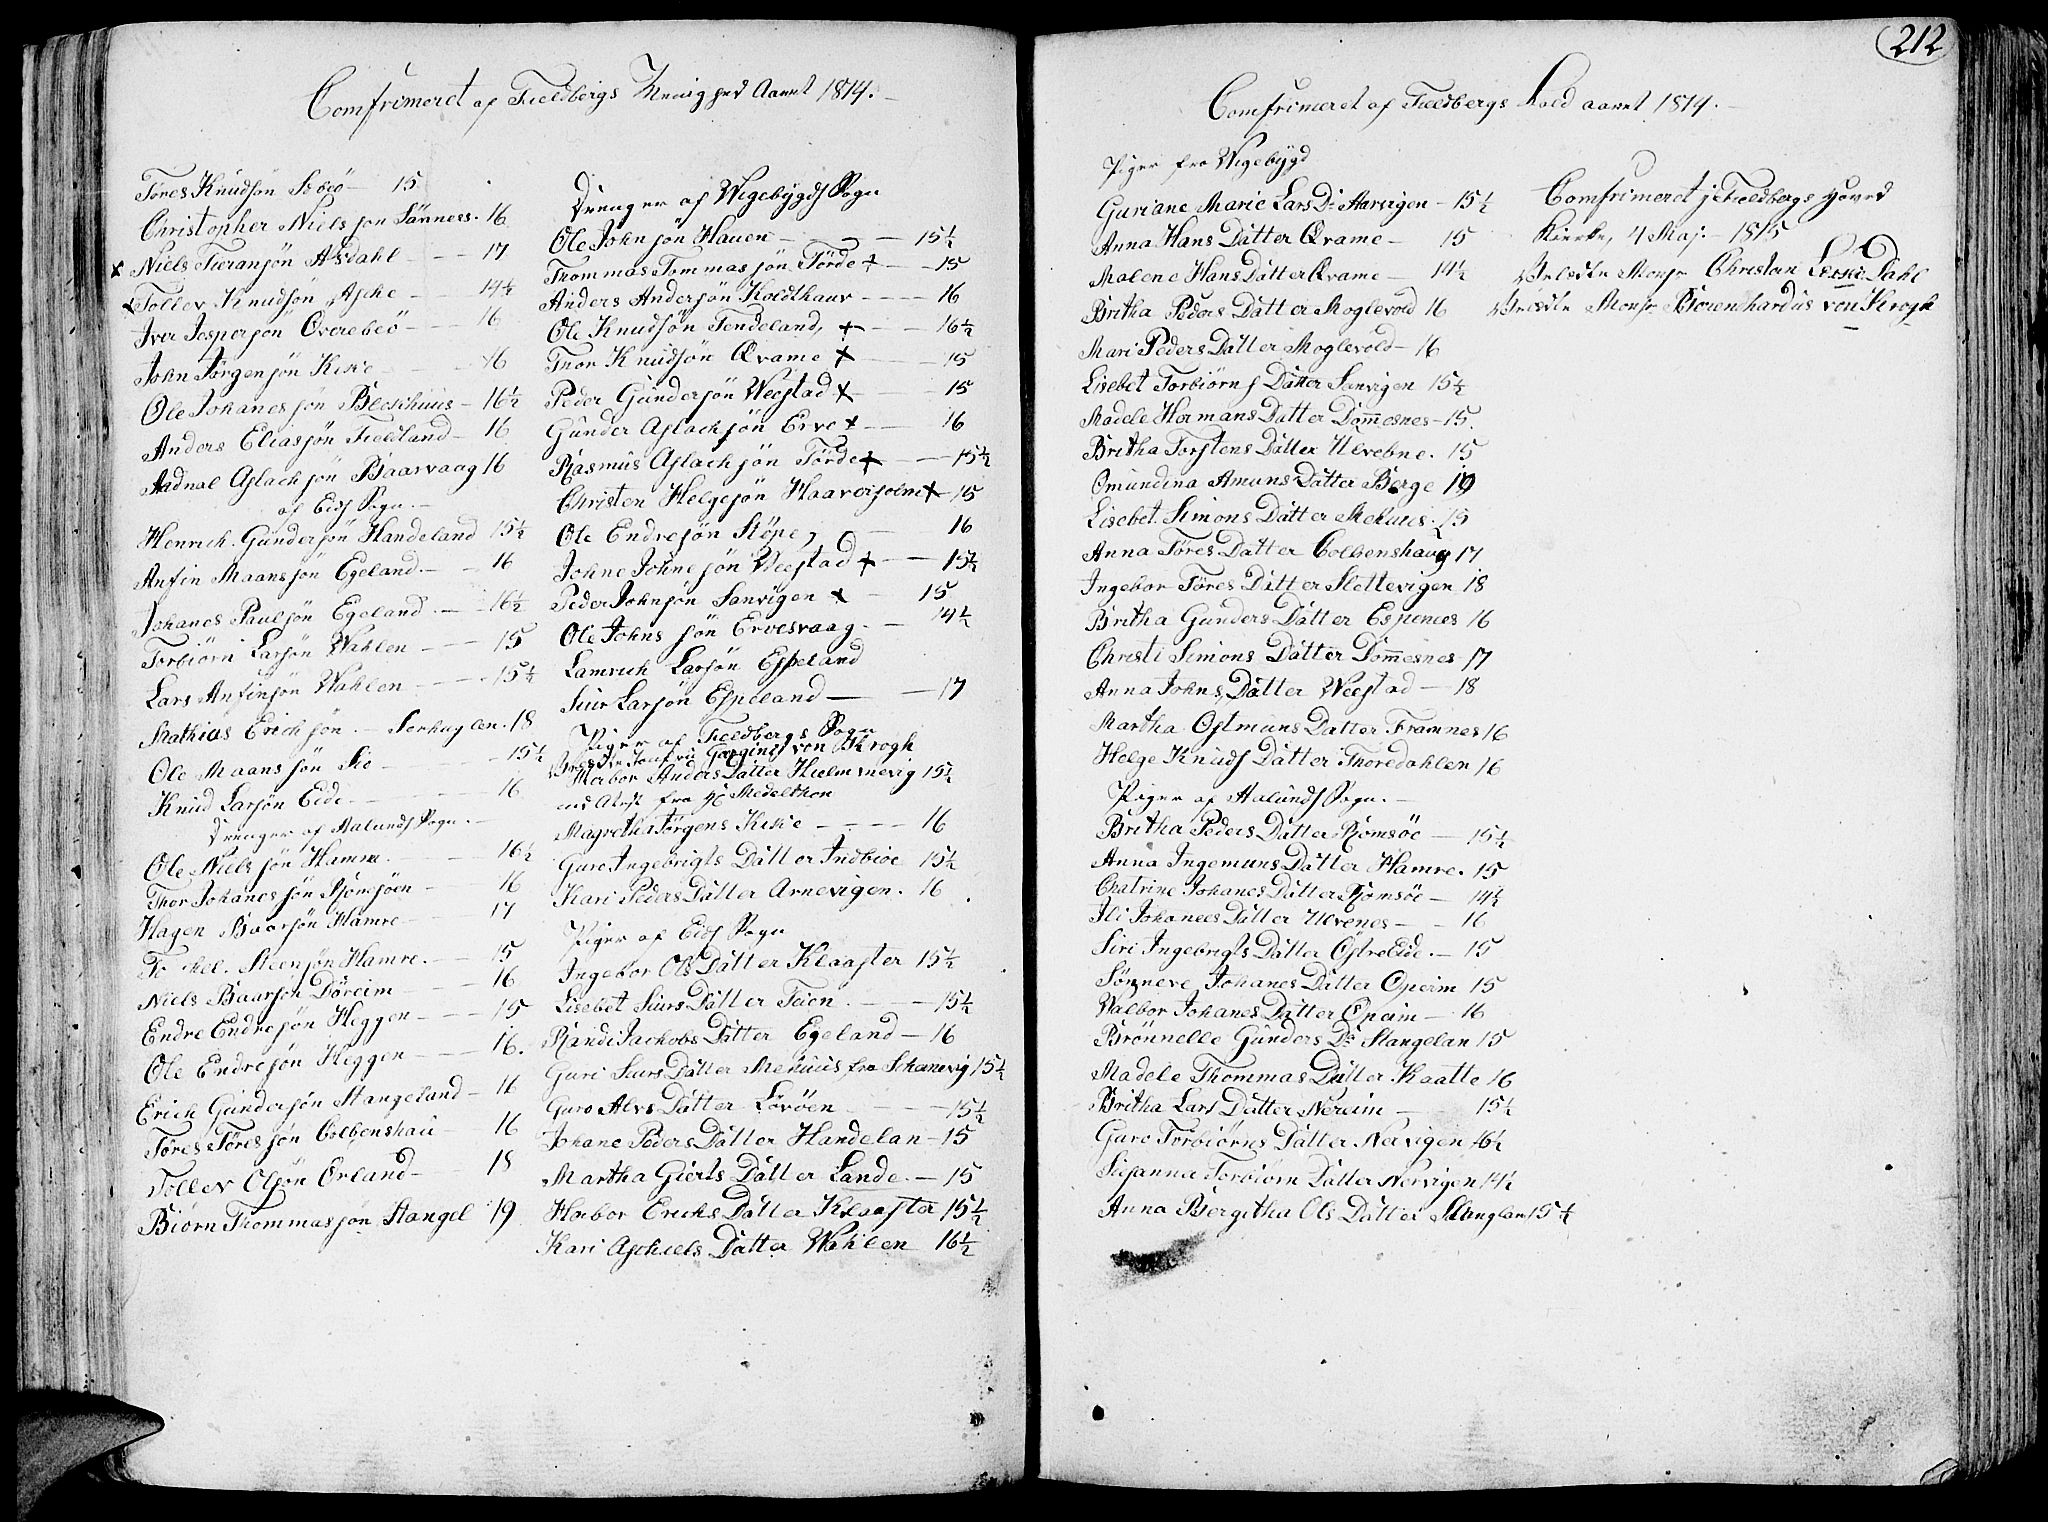 Comfrimeret af Fieldbergs Menighed Aaret 1814.
Tøres Knudsøn Sebøe 15
Christopher Nielsson Sønnes. 16
x Niels Tieransøn Asdahl 17
Tollev Knudsøn Aske 14½
Iver Jespersøn Øverebeö 16
John Jörgensøn Kirke 16
Ole Johanessøn Bleschuus 16½
Anders Eliassøn Fieldland 16
Aadnal Aslachsøn Baarvaag 16
af Eids Sogn.
Henrich Gundersøn Handeland 15½
Anfin Maanssøn Egeland. 16
Johanes Paulsøn Egeland. 16½
Torbiörn Larsøn Wahlen 15
Lars Anfinsøn Wahlen 15½
Mathias Erichsøn. Serhuglen. 18
Ole Maanssøn Sie 15½
Knud Larsøn Eide. 16
Drenger af Aalunds Sogn.
Ole Nielssøn Hamre. 16½
Thor Johanessøn 16
Hagen Baarsøn Hamre 17
Steensøn Hamre. 15
Niels Baarsøn Döreim 16
Endre Endresøn Heggen 15
Ole Endresøn Heggen 16.
Erich Gundersøn Stangeland 16
Töres Töressøn Colbenshau 16
Tollev Olsøn Örland 18
Biörn Thommassøn Stangel 19
Drenger af Wigebygds Sogn
Ole Johnsøn Hauen 15½
Thommas Tommassøn Törde + 15
Anders Andersøn Holdthaur 16
Ole Knudsøn Tendeland, + 16½
Thor Knudsøn Qvame + 15
Peder Gundersøn Weestad + 15
Gunder Aslachsøn Erve + 16
Rasmus Aslachsøn Törde + 15½
Christen Helgesøn Haaverholm + 15
Ole Endresøn Stöpe, 16
Johne Johnesøn Weestad + 15½
Peder Johnsøn Sanvigen + 15
Ole Johnssøn Ervesvaag. 14½
Lamrich Larsøn Espeland
Siur Larsøn Espeland 17
Piger af Fieldbergs Sogn
von Krogh
Herbor Anders Datter Hielmevig 15½
Magretha Jörgens Kirke 16
Guro Ingebrigts Datter Indbioe 15½
Kari Peders Datter Arnevigen. 16
Piger af Eids Sogn
Ingebor Ols Datter Klaaster 15½
Lisebet Siurs Datter Teien. 15½
Randi Jachobs Datter Egeland 16
Guri Siurs Datter Mehuus fra Schanevig 15½
Guro Alvs Datter Lövöen 15½
Johane Peders Datter Handelan 15
Martha Gierts Datter Lande. 15
Herbor Erichs Datter Klaaster 15½
Kari Aschiels Datter Wahlen 16½
212
Comfrimeret af Fieldbergs Kald aaret 1814.
Piger fra Wigebygd
Guriane Marie Lars Dr Aarvigen 15½
Anna Hans Datter Qvame 15
Malene Hans Datter Qvame 14½
Britha Peders Datter Moglevold 16
Mari Peders Datter Moglevold 16
Lisebet Torbiörns Datter Sanvigen 15½
Madele Hermans Datter Dommesnes 15.
Britha Torstens Datter Ulvebne. 15
Omundina Amuns Datter Berge 19
Lisebet Simons Datter Mehuus. 15
Anna Töres Datter Colbenshaug 17
Ingebor Töres Datter Slettevigen 18
Britha Gunders Datter Espenes 16
Christi Simons Datter Dommesnes 17
Anna Johns Datter Weestad 18
Martha Ostmuns Datter Framnes 16
Helge Knuds Datter Thoredahlen 16
Piger af Aalunds Sogn.
Britha Peders Datter Romsöe 15½
Anna Ingemuns Datter Hamre. 15
Chatrine Johanes Datter Romsöe 14½
Ili Johanees Datter Ulvenes 16
Siri Ingebrigts Datter Östre Eide. 15
Sönneve Johanes Datter Opeim 15
Valbor Johanes Datter Opeim 16
Brönnelle Gunders Dr Stangelan 15
Madele Thommas Datter Kaatte 16
Britha Lars Datter Nereim 15½
Guro Torbiörns Datter Nervigen 16½
Susanna Torbiörn Datter Nervigen 14½
Anna Bergitha Ols Datter Stanglan 15½
Comfrimeret i Fieldbergs Hoved
Kierke, 4 Maj. 1815
Monsr Christian Dahl
Monsr von Krogh